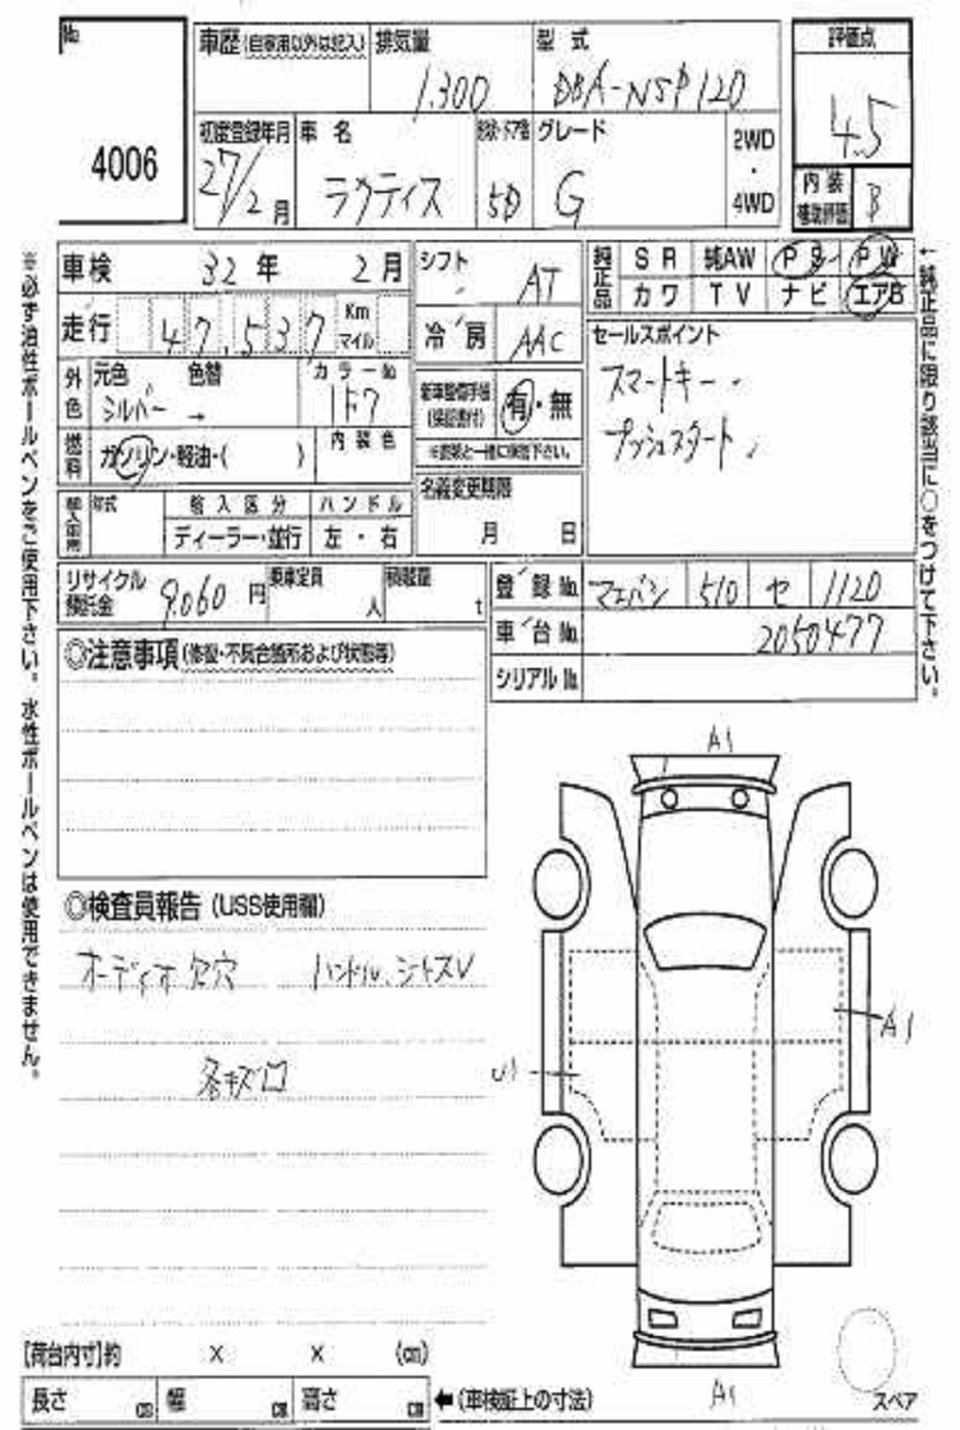 No.
4006
車歴(自家用以外は記入) 排気量 型式
1,300 DBA-NSP120
評価点
4.5
初度登録年月 車名 グレード 2WD・4WD
27/2月 ラクティス 5D G
内装補助評価 B
車検 32年 2月
シフト AT
純正品 SR 純AW PS PW
カワ TV ナビ エアB
走行 47,537 Km マイル
冷房 AAC
セールスポイント
スマートキー
プッシュスタート
外色 元色 色替 カラーNo
シルバー → 1F7
有・無
燃料 ガソリン・軽油・( ) 内装色
名義変更期限
月 日
年式 輸入区分 ハンドル
ディーラー・並行 左・右
リサイクル預託金 9,060円 乗車定員 人 積載量 t
登録No. マエバシ 510 セ 1120
車台No. 2050477
シリアルNo.
◎注意事項(修復・不具合箇所および状態等)
◎検査員報告(USS使用欄)
オーディオ欠穴 ハンドル、シートスレ
各キズ凹
A1
A1
U1
A1
スペア
[荷台内寸]約 × × (cm)
長さ cm 幅 cm 高さ cm ←(車検証上の寸法)
※必ず油性ボールペンをご使用下さい。水性ボールペンは使用できません。
←純正品に限り該当に○をつけて下さい。